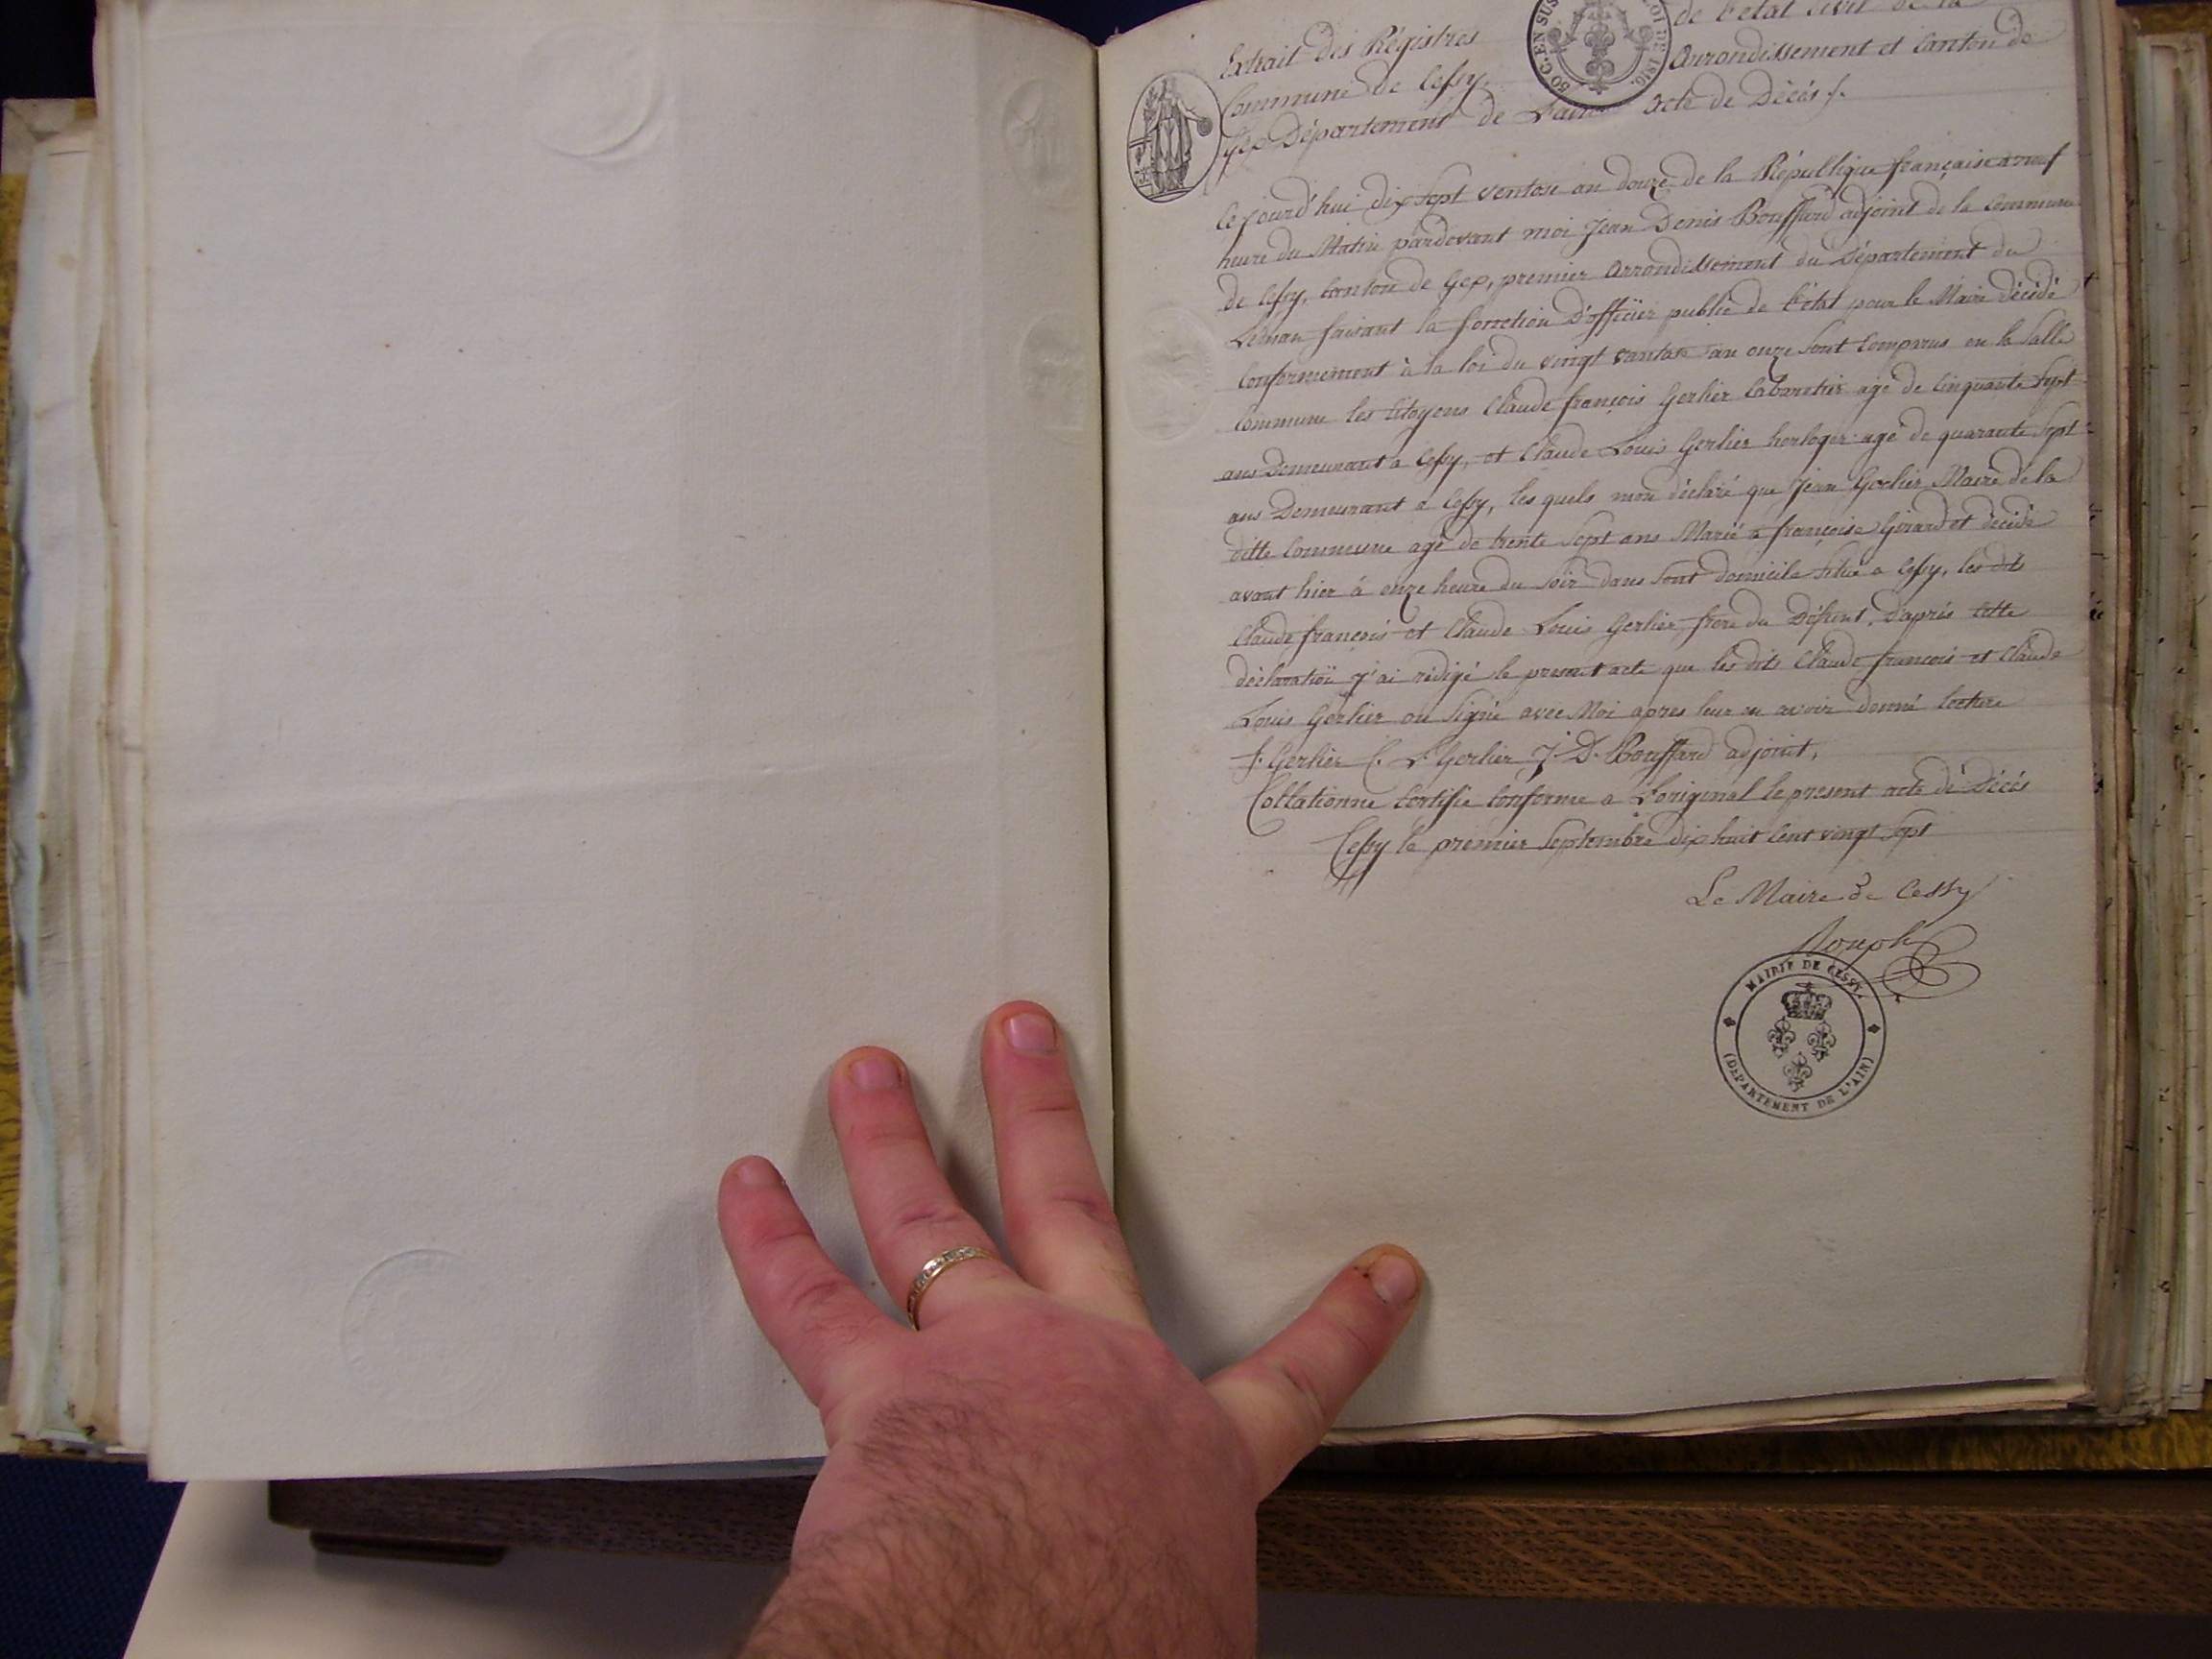 Extrait des Régistres de l'état civil de la
Commune de Cessy Arrondissement et Canton de
Gex Département de L'ain Acte de Décés /.
50 C. EN SUS
LOI DE 1816.
Cejourd'hui dix sept ventose an douze de la République française a neuf
heure du Matin pardevant moi Jean Denis Bouffard adjoint de la Commune
de Cessy, Canton de Gex, premier Arrondissement du Département du
Léman faisant la fonction D'officier public de l'état pour le Maire décédé
Conformement à la loi du vingt vantose an onze sont Comparus en la Salle
Commune les Citoyens Claude françois Gerlier Cabaretier agé de Cinquante Sept
ans Demeurant a Cessy, et Claude Louis Gerlier horloger agé de quarante Sept
ans Demeurant a Cessy, les quels mon déclaré que Jean Gerlier Maire de la
ditte Commune agé de trente Sept ans Marié a françoise Girard et décédé
avant hier à onze heure du Soir dans sont domicile situé a Cessy, les dits
Claude françois et Claude Louis Gerlier frere du Défunt, D'aprés Cette
déclaration j'ai rédigé le present acte que les dits Claude françois et Claude
Louis Gerlier on Signé avec Moi apres leur en avoir donné lecture
f. Gerlier C. L. Gerlier J. D. Bouffard adjoint,
Collationné Certifié Conforme a L'original le present acte de Décés
Cessy le premier Septembre dix huit Cent vingt Sept
Le Maire de Cessy
MAIRIE DE CESSY
(DEPARTEMENT DE L'AIN)